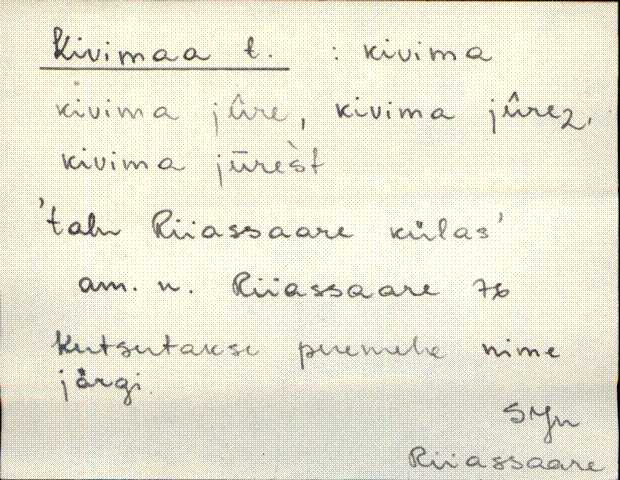 Kivimaa t. : kivima
kivima jûre, kivima jûrez,
kivima jūrèst
'talu Riiassaare külas'
am. n. Riiassaare 76
Kutsutakse peremehe nime
järgi.
SJn
Riiassaare